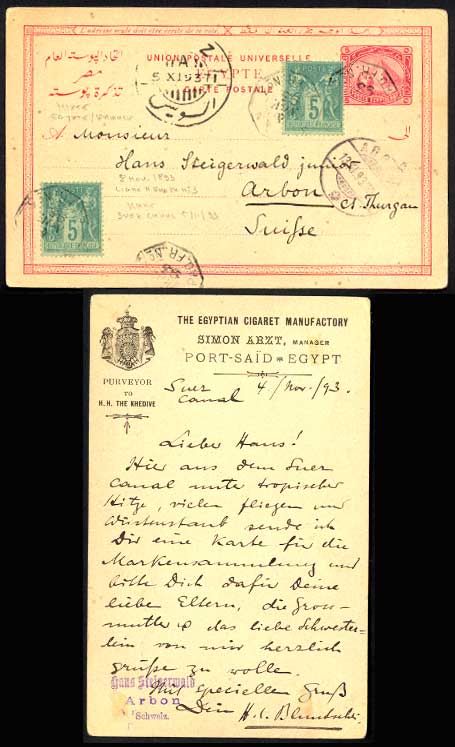 L'adresse seule doit être écrite de ce côté.
UNION POSTALE UNIVERSELLE
اتحاد البوستة العام
مصر
تذكرة بوستة
EGYPTE
CARTE POSTALE
5 XI 93
5
5
الى
A Monsieur
Hans Steigerwald junior
8 Nov. 1893
Arbon
Ct. Thurgau
Suisse
SUEZ CANAL 5/11/93
THE EGYPTIAN CIGARET MANUFACTORY
SIMON ARZT, MANAGER
PORT-SAÏD EGYPT
PURVEYOR
TO
H. H. THE KHEDIVE
Suez 4./Nov./93.
Canal
Lieber Hans!
Hier aus dem Suez
Canal unter tropischer
Hitze, vielen fliegen und
Wüstenstaub sende ich
Dir eine Karte für die
Markensammlung und
bitte Dich dafür Deine
liebe Eltern, die Gross-
mutter & das liebe Schwester-
lein von mir herzlich
grüße zu wolle.
Mit speciellem Gruß
Dein H. C. Bluntschli.
Hans Steigerwald
Arbon
Schweiz.